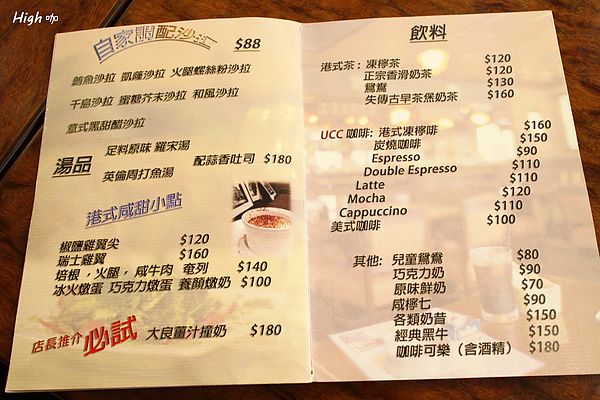 High咖
自家調配沙拉 $88
鮪魚沙拉 凱薩沙拉 火腿螺絲粉沙拉
千島沙拉 蜜糖芥末沙拉 和風沙拉
意式黑甜醋沙拉
湯品
足料原味 羅宋湯
配蒜香吐司 $180
英倫周打魚湯
港式咸甜小點
椒鹽雞翼尖 $120
瑞士雞翼 $160
培根，火腿，咸牛肉 奄列 $140
冰火燉蛋 巧克力燉蛋 養顏燉奶 $100
店長推介 必試 大良薑汁撞奶 $180
飲料
港式茶：凍檸茶 $120
正宗香滑奶茶 $120
鴛鴦 $130
失傳古早茶煲奶茶 $160
UCC 咖啡: 港式凍檸啡 $160
炭燒咖啡 $150
Espresso $90
Double Espresso $110
Latte $110
Mocha $120
Cappuccino $110
美式咖啡 $100
其他: 兒童鴛鴦 $80
巧克力奶 $90
原味鮮奶 $70
咸檸七 $90
各類奶昔 $150
經典黑牛 $150
咖啡可樂（含酒精） $180